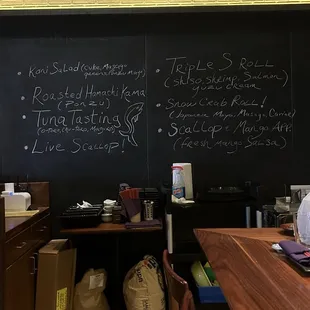 Kani Salad (cuke, Mango,
Roasted Hamachi Kama
(Ponzu)
Tuna Tasting
Live Scallop!
Triple S Roll
(shiso, shrimp, Salmon)
yuzu cream
Snow Crab Roll!
(Japanese Mayo, Masago,
Scallop + Mango App.
(fresh mango Salsa)